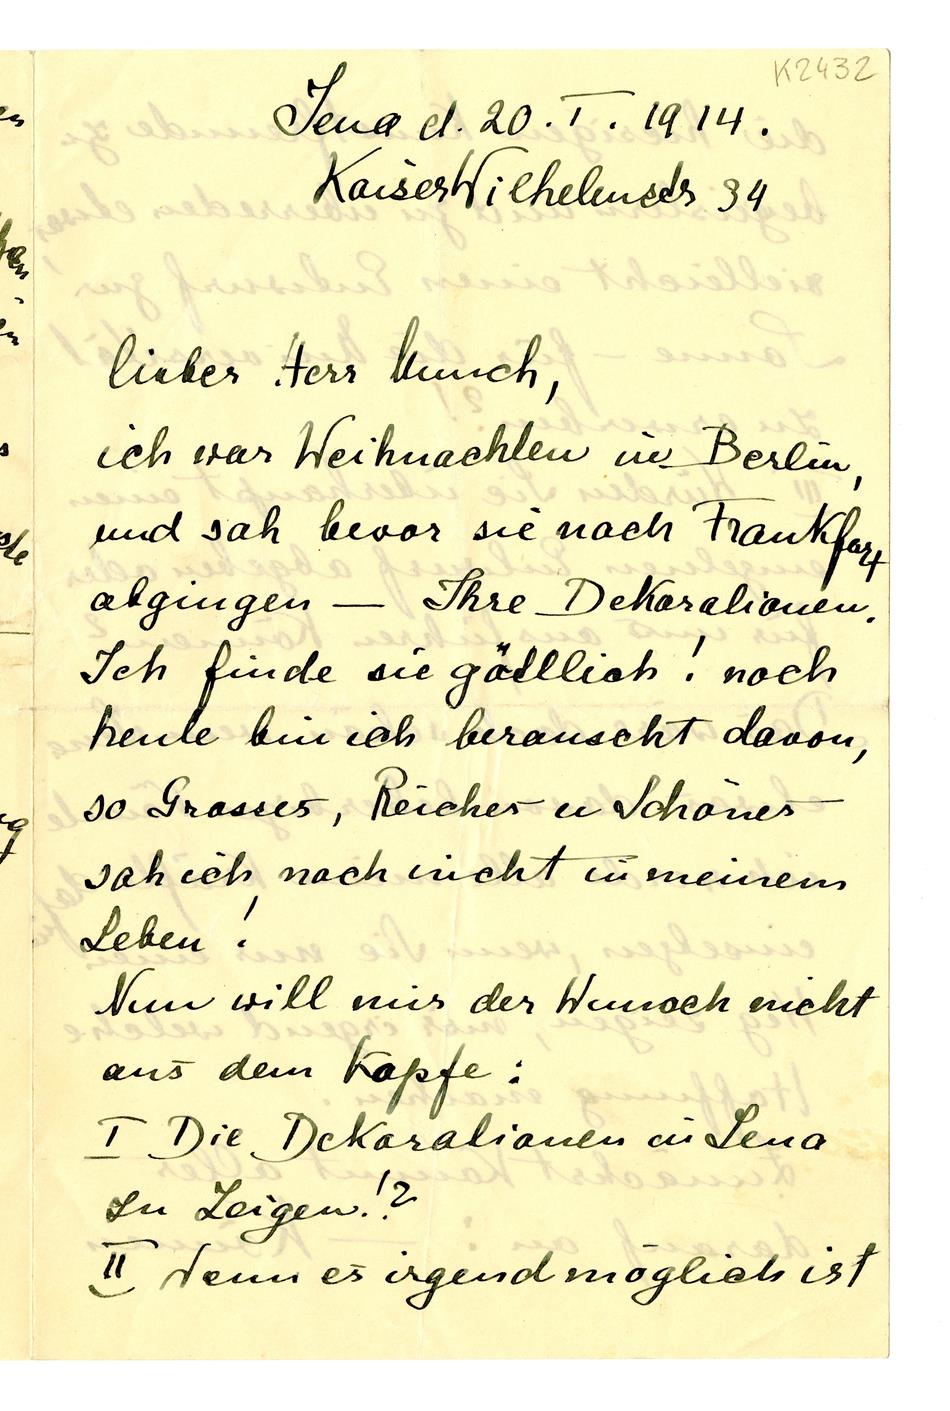 K2432
Jena d. 20. I. 1914.
Kaiser Wilhelmstr 34
lieber Herr Munch,
ich war Weihnachten in Berlin,
und sah bevor sie nach Frankfurt
abgingen — Ihre Dekorationen.
Ich finde sie göttlich! noch
heute bin ich berauscht davon,
so Grosses, Reiches u Schönes
sah ich noch nicht in meinem
Leben!
Nun will mir der Wunsch nicht
aus dem Kopfe:
I Die Dekorationen in Jena
zu Zeigen!?
II Wenn es irgend möglich ist